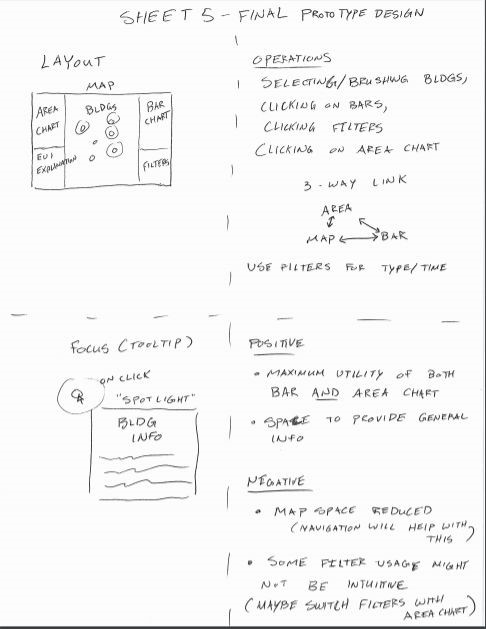 SHEET 5 - FINAL PROTOTYPE DESIGN
LAYOUT
MAP
AREA
CHART
BLDGS
BAR
CHART
EUI
EXPLANATION
FILTERS
OPERATIONS
SELECTING/BRUSHING BLDGS,
CLICKING ON BARS,
CLICKING FILTERS
CLICKING ON AREA CHART
3-WAY LINK
AREA
MAP
BAR
USE FILTERS FOR TYPE/TIME
FOCUS (TOOLTIP)
ON CLICK
"SPOTLIGHT"
BLDG
INFO
POSITIVE
• MAXIMUM UTILITY OF BOTH
BAR AND AREA CHART
• SPACE TO PROVIDE GENERAL
INFO
NEGATIVE
• MAP SPACE REDUCED
(NAVIGATION WILL HELP WITH
THIS)
• SOME FILTER USAGE MIGHT
NOT BE INTUITIVE
(MAYBE SWITCH FILTERS WITH
AREA CHART)